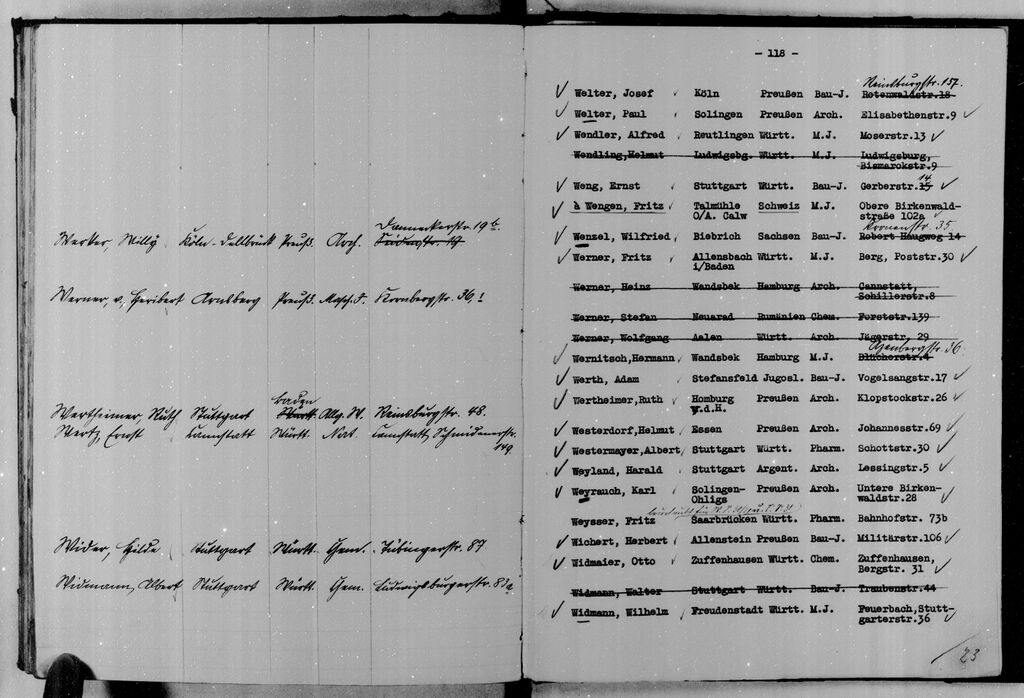 Dannekerstr. 19b
Werker, Willy Köln-Dellbrück Preuß. Arch. Seidenstr. 19
Werner, v. Heribert Arnsberg Preuß. Masch.-I. Kornbergstr. 36,1
Baden
Wertheimer, Ruth Stuttgart Württ. Allg. W. Reinsburgstr. 48.
Wertz, Ernst Cannstatt Württ. Nat. Cannstatt, Schmidenerstr.
149.
Wider, Hilde Stuttgart Württ. Chem. Tübingerstr. 87
Widmann, Albert Stuttgart Württ. Chem. Ludwigsburgerstr. 83a
- 118 -
Reinsburgstr. 157.
Welter, Josef Köln Preußen Bau-J. Rotenwaldstr.18
Welter, Paul Solingen Preußen Arch. Elisabethenstr.9
Wendler, Alfred Reutlingen Württ. M.J. Moserstr.13
Wendling,Helmut Ludwigsbg. Württ. M.J. Ludwigsburg,
Bismarckstr.9
14
Weng, Ernst Stuttgart Württ. Bau-J. Gerberstr.15
à Wengen, Fritz Talmühle Schweiz M.J. Obere Birkenwald-
O/A. Calw straße 102a
Kronenstr. 35
Wenzel, Wilfried Biebrich Sachsen Bau-J. Robert Haugweg 14
Werner, Fritz Allensbach Württ. M.J. Berg, Poststr.30
i/Baden
Werner, Heinz Wandsbek Hamburg Arch. Cannstatt,
Schillerstr.8
Werner, Stefan Neuarad Rumänien Chem. Forststr.139
Werner, Wolfgang Aalen Württ. Arch. Jägerstr. 29
Azenbergstr. 36.
Wernitsch,Hermann Wandsbek Hamburg M.J. Blücherstr.4
Werth, Adam Stefansfeld Jugosl. Bau-J. Vogelsangstr.17
Wertheimer,Ruth Homburg Preußen Arch. Klopstockstr.26
v.d.H.
Westerdorf,Helmut Essen Preußen Arch. Johannesstr.69
Westermayer,Albert Stuttgart Württ. Pharm. Schottstr.30
Weyland, Harald Stuttgart Argent. Arch. Lessingstr.5
Weyrauch, Karl Solingen- Preußen Arch. Untere Birken-
Ohligs waldstr.28
Weysser, Fritz Saarbrücken Württ. Pharm. Bahnhofstr. 73b
Wichert, Herbert Allenstein Preußen Bau-J. Militärstr.106
Widmaier, Otto Zuffenhausen Württ. Chem. Zuffenhausen,
Bergstr. 31
Widmann, Walter Stuttgart Württ. Bau-J. Traubenstr.44
Widmann, Wilhelm Freudenstadt Württ. M.J. Feuerbach,Stutt-
garterstr.36
23